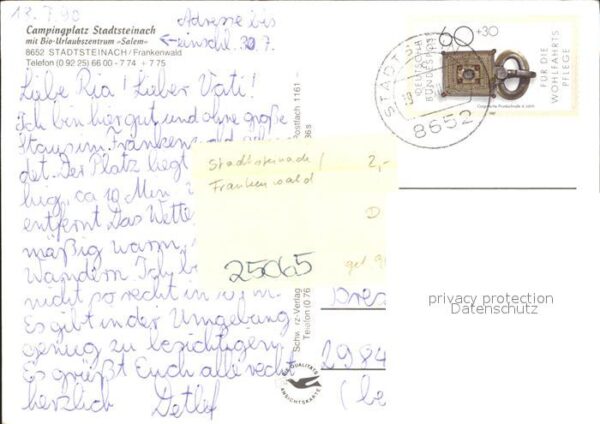 13.7.90
Adresse bis
einschl. 30.7.
Campingplatz Stadtsteinach
mit Bio-Urlaubszentrum »Salem«
8652 STADTSTEINACH/Frankenwald
Telefon (0 92 25) 66 00 - 7 74 + 7 75
Liebe Ria! Lieber Vati!
Ich bin hier gut und ohne große
Staus im Frankenwald
det. Der Platz liegt
hig, ca 10 Min
entfernt. Das Wette
mäßig warm,
Wandern. Ich
nicht so recht in
Es gibt in der Umgebung
genug zu besichtigen.
Es grüßt Euch alle recht
herzlich Detlef
Postfach 1161
Schw rz-Verlag
Telefon (0 76
QUALITÄTS
ANSICHTSKARTE
Stadtsteinach/
Frankenwald
2,-
D
25065
gel
60+30
DEUTSCHE
BUNDESPOST
FÜR DIE
WOHLFAHRTS
PFLEGE
STADTST
8652
privacy protection
Datenschutz
2984
(be